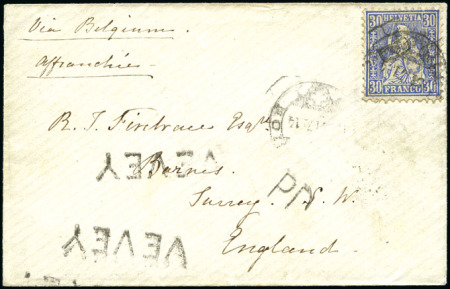 Via Belgium.
Affranchie.
30 HELVETIA 30
30 FRANCO 30
R. T. Firebrace Esqre
Barnes.
VEVEY
Surrey. S. W.
PD
VEVEY
England.